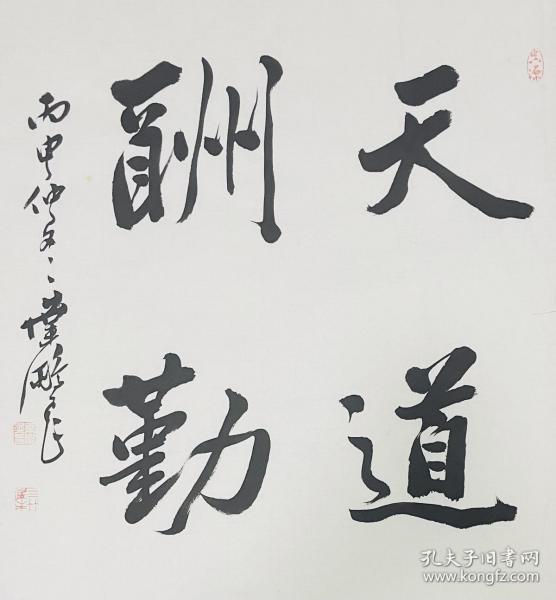 天道
酬勤
丙申仲冬
孔夫子旧书网
www.kongfz.com